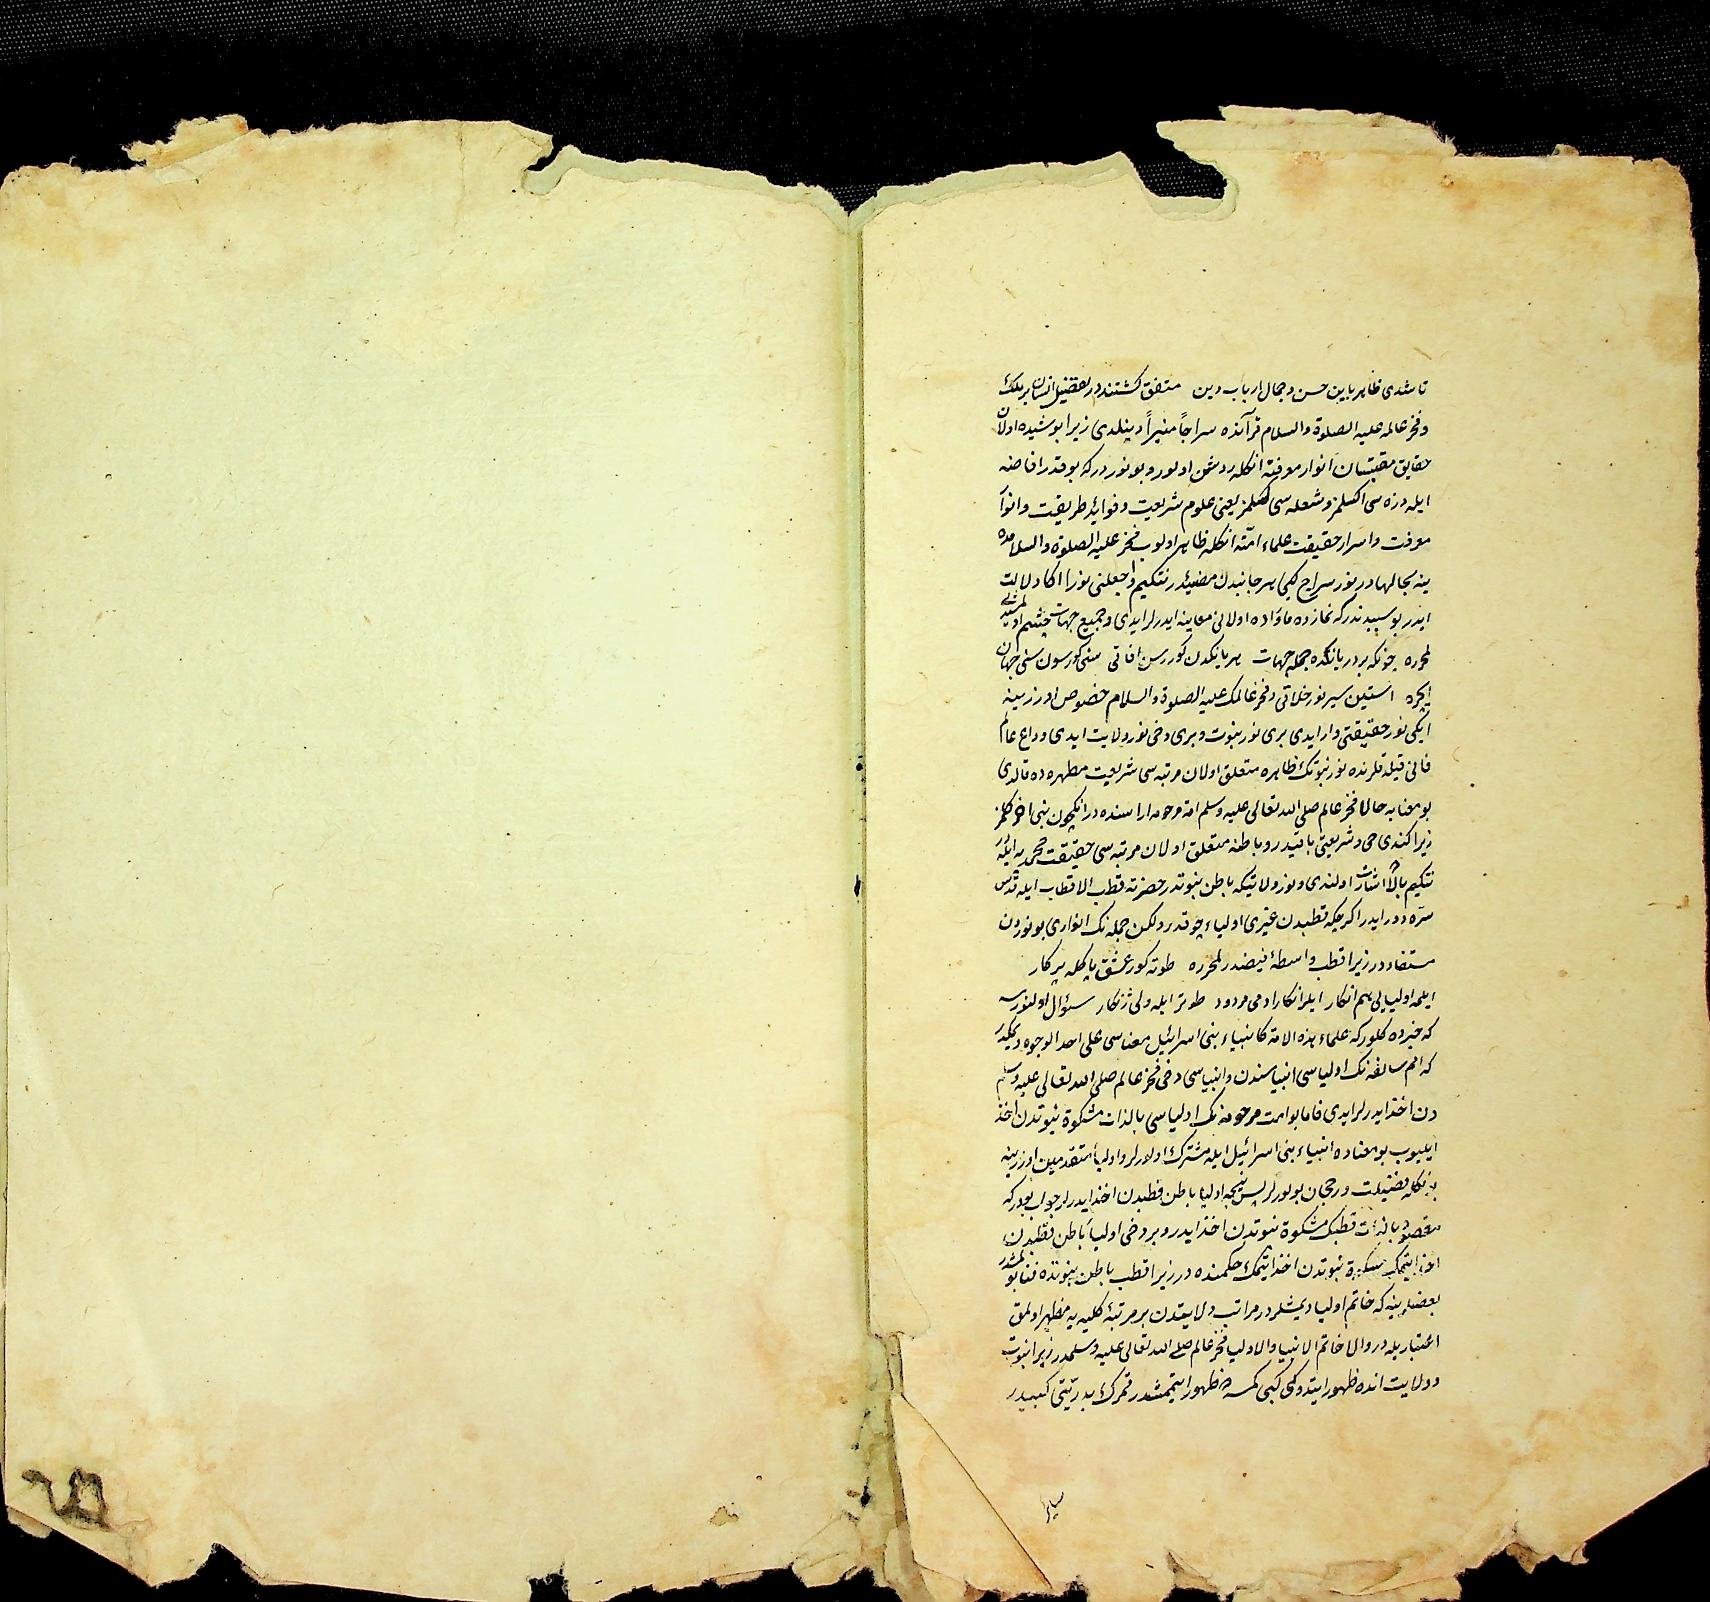 تا شدی ظاهر باین حسن و جمال ارباب دین متفق کشتند در تفضیل انسان بر ملک
و فخر عالمه علیه الصلوة والسلام قرآنده سراجاً منیراً دینلدی زیرا پوشیده اولان
حقایق مقتبسان انوار معرفته انکله روشن اولور و بو نور درکه بو قدر افاضه
ایله ذره سی اکسلمز و شعله سی کسلمز یعنی علوم شریعت و فوائد طریقت و انوار
معرفت و اسرار حقیقت علماء امته انکله ظاهر اولوب فخر علیه الصلوة والسلامده
ینه بحالهادر نور سراج کبی هر جانبدن مضیئدر نتکیم و اجعلنی نورا اکا دلالت
ایدر بو سببدندرکه نمازده ماوراده اولانی معاینه ایدرلر ایدی و جمیع جهات چشم اولمشیدی
لمحرره چونکه بردر یانکده جمله جهات هر یانکدن کوررسن افاتی سنی کورسون سنی جهان
ایچره استین سیر نور خلاتی و فخر عالمک علیه الصلوة والسلام خصوص اوزرینه
ایکی نور حقیقتی وار ایدی بری نور نبوت و بری دخی نور ولایت ایدی وداع عالم
فانی قیلدقلرنده نور نبوتک ظاهره متعلق اولان مرتبه سی شریعت مطهره ده قالدی
بو معنایه حالا فخر عالم صلی الله تعالی علیه وسلم امة مرحومه اراسنده در انکچون نبی اخر کلمز
زیرا کندی حی و شریعتی باقیدر و باطنه متعلق اولان مرتبه سی حقیقت محمدیه ایله
نتکیم بالاده اشارت اولندی و نور ولایتکه باطن نبوتدر حضرته قطب الاقطاب ایله قدس
سره دور ایدر اکرچکه قطبدن غیری اولیاء چوقدر ولکن جمله نک انواری بو نوردن
مستفاددر زیرا قطب واسطۀ فیضدر لمحرره طوته کور عشق یا کله پرکار
ایلمه اولیایی هم انکار ایلر انکار ادمی مردود طوتر ایله ولی ژنکار سئوال اولنورسه
که خبرده کلورکه علماء هذه الامة کانبیاء بنی اسرائیل معناسی علی احد الوجوه دیمکدر
که امم سالفه نک اولیاسی انبیاسندن و انبیاسی دخی فخر عالم صلی الله تعالی علیه وسلم
دن اخذ ایدرلر ایدی فاما بو امت مرحومه نک اولیاسی بالذات مشکوة نبوتدن اخذ
ایلیوب بو معناده انبیاء بنی اسرائیل ایله مشترک اولورلر و اولیاء متقدمین اوزرینه
بونکله فضیلت و رجحان بولورلر پس نیچه اولیا باطن قطبدن اخذ ایدرلر جواب بودرکه
مقصود بالذات قطبک مشکوة نبوتدن اخذ ایدر و بر دخی اولیا باطن قطبدن
اخذ ایتمک مشکوة نبوتدن اخذ ایتمک حکمنده در زیرا قطب باطن نبوتده فنا بولمشدر
بعضیلرینه که خاتم اولیا دیمشلردر مراتب ولایتدن بر مرتبۀ کلیه یه مظهر اولمق
اعتباریله در والا خاتم الانبیا والاولیا فخر عالم صلی الله تعالی علیه وسلمدر زیرا نبوت
و ولایت انده ظهور ایتدوکی کبی کمسه ده ظهور ایتممشدر قمرک بدریتی کبیدر